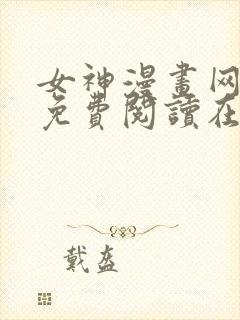 女神漫畫网
免費閱讀在
戴盔